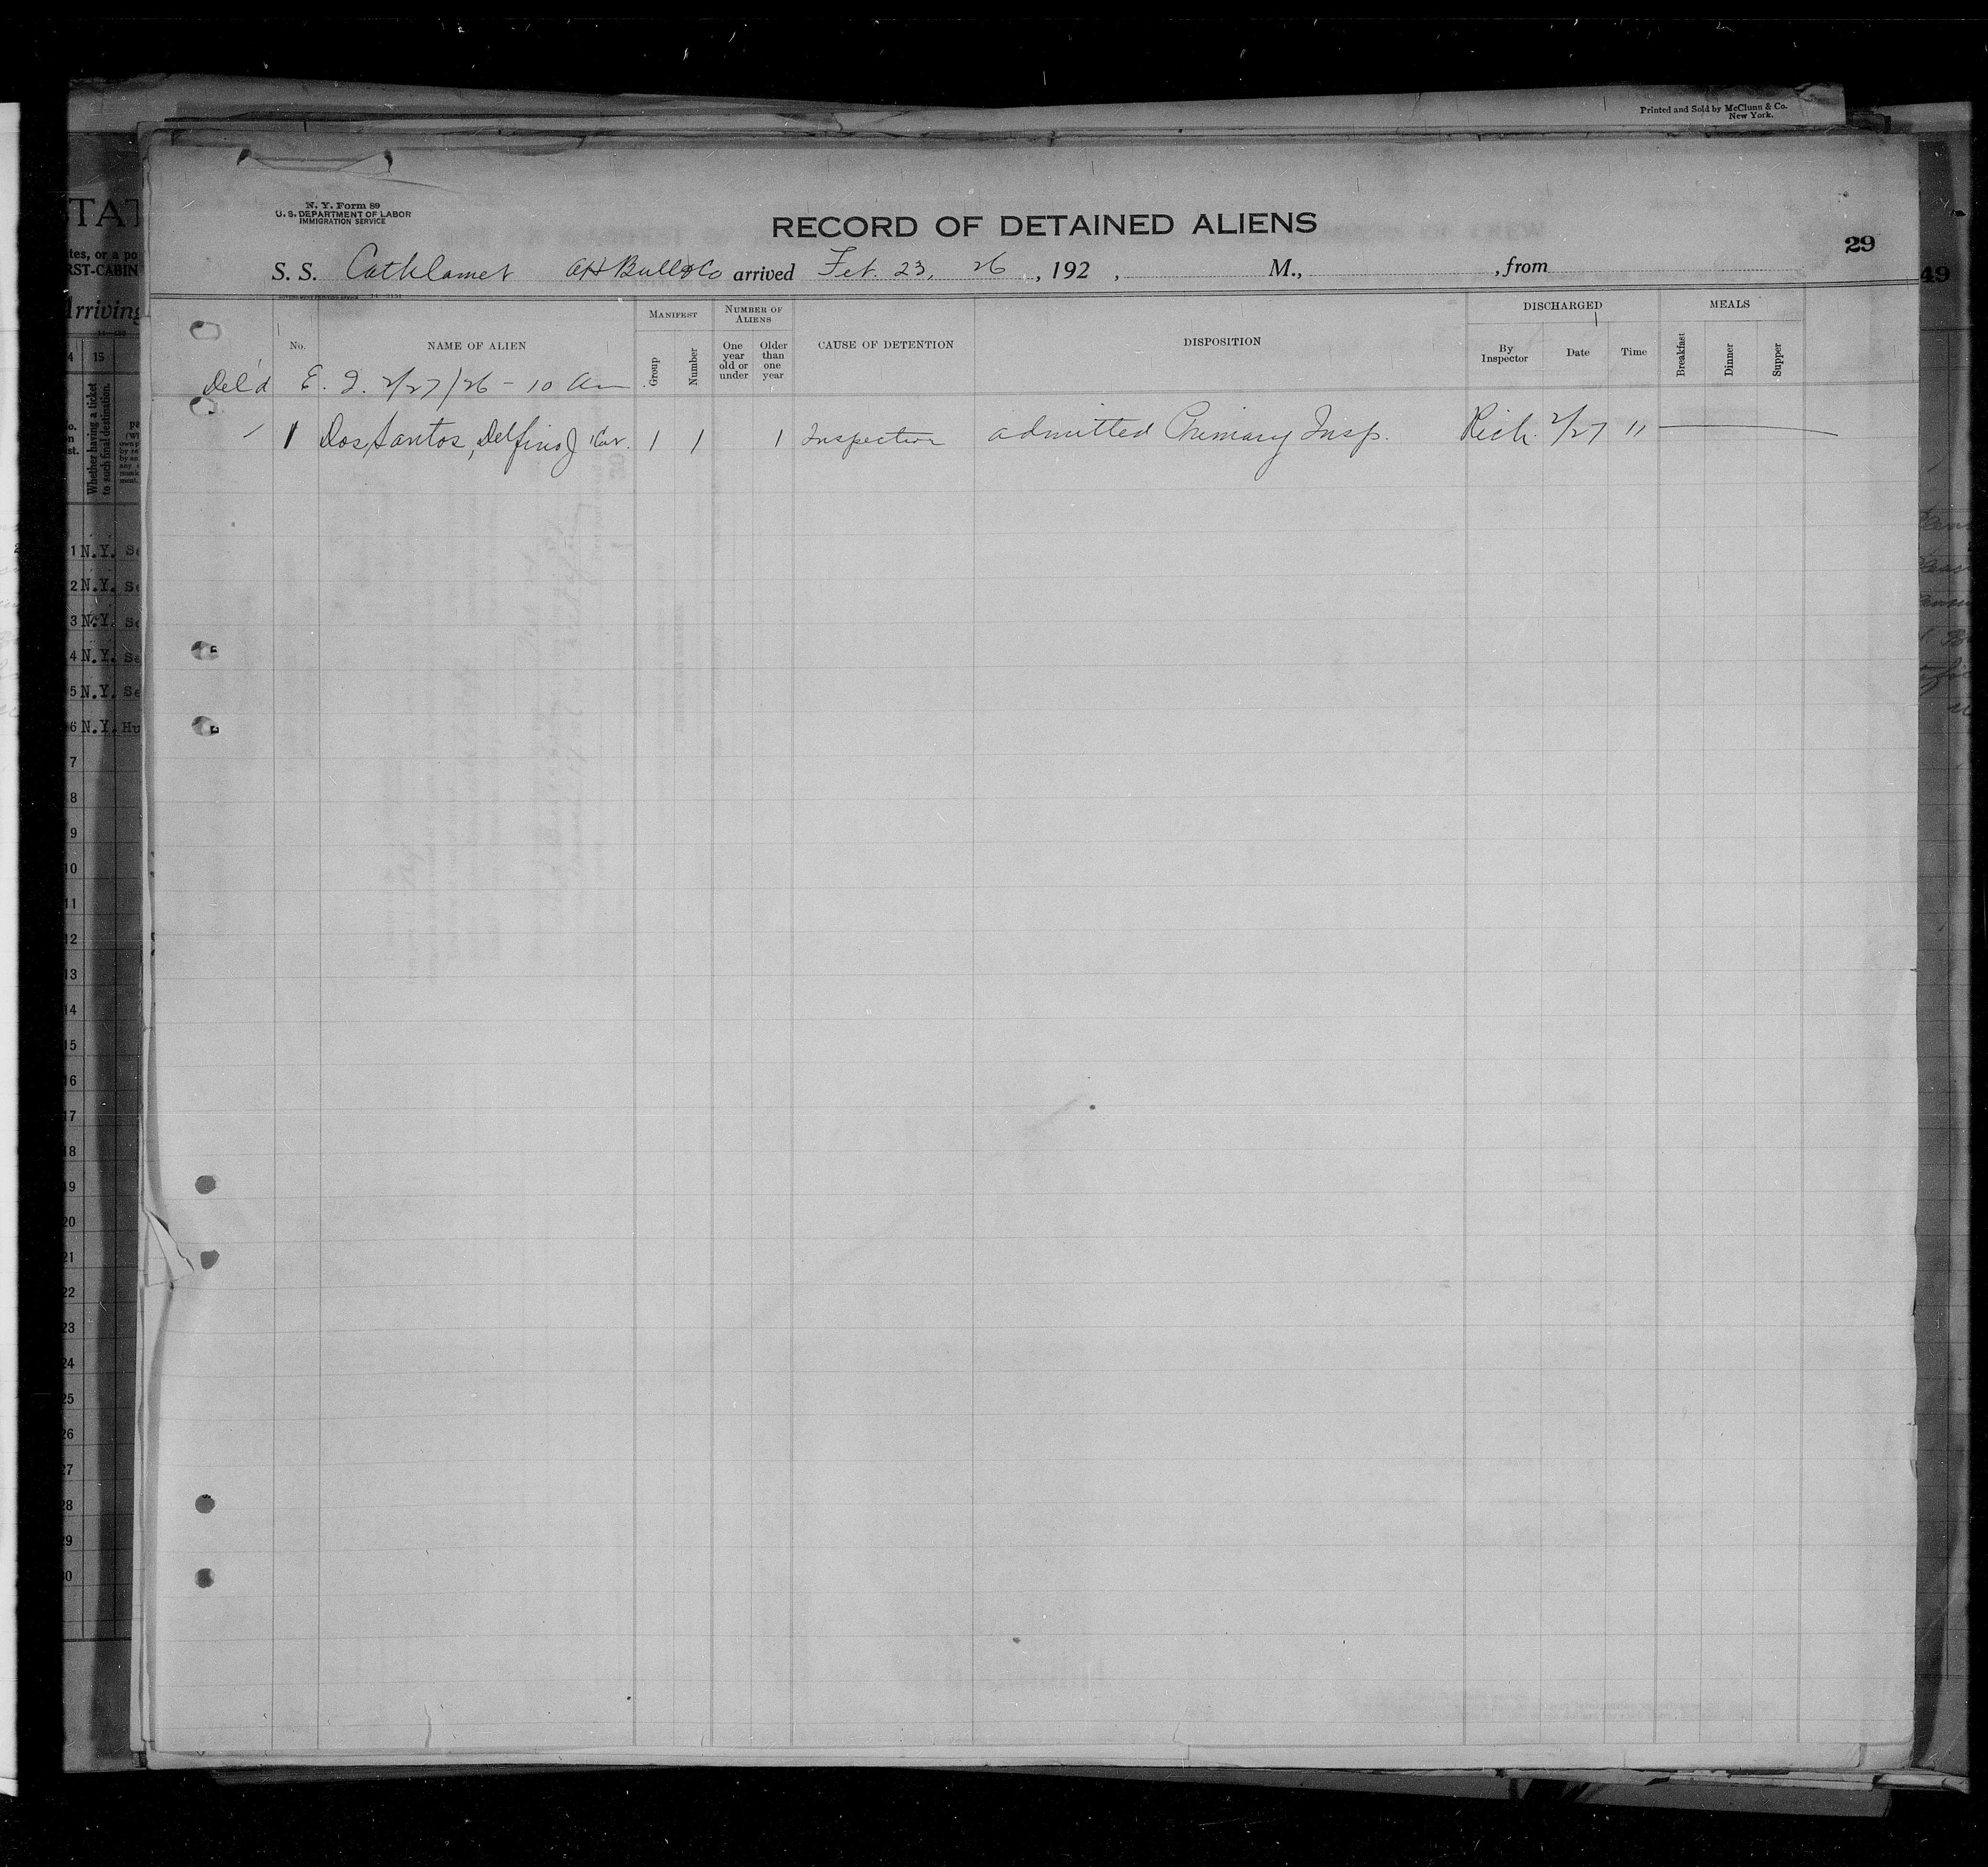 Printed and Sold by McClunn & Co.
New York.
N. Y. Form 89
U. S. DEPARTMENT OF LABOR
IMMIGRATION SERVICE
RECORD OF DETAINED ALIENS
29
S. S. Cathlamet AH Bull & Co arrived Feb. 23, 26, 192 , M., , from
MANIFEST
NUMBER OF ALIENS
DISCHARGED
MEALS
No.
NAME OF ALIEN
Group
Number
One year old or under
Older than one year
CAUSE OF DETENTION
DISPOSITION
By Inspector
Date
Time
Breakfast
Dinner
Supper
Del'd E. I. 2/27/26 - 10 Am
1 Dos Santos, Delfino J 1 1 1 Inspection admitted Primary Insp. Rich. 2/27 11
TAT
tes, or a po
RST-CABIN
Arriving
4 15
Whether having a ticket to such final destination.
1 N.Y. Se
2 N.Y. Se
3 N.Y. Se
4 N.Y. Se
5 N.Y. Se
6 N.Y. Hu
7
8
9
10
11
12
13
14
15
16
17
18
19
20
21
22
23
24
25
26
27
28
29
30
49